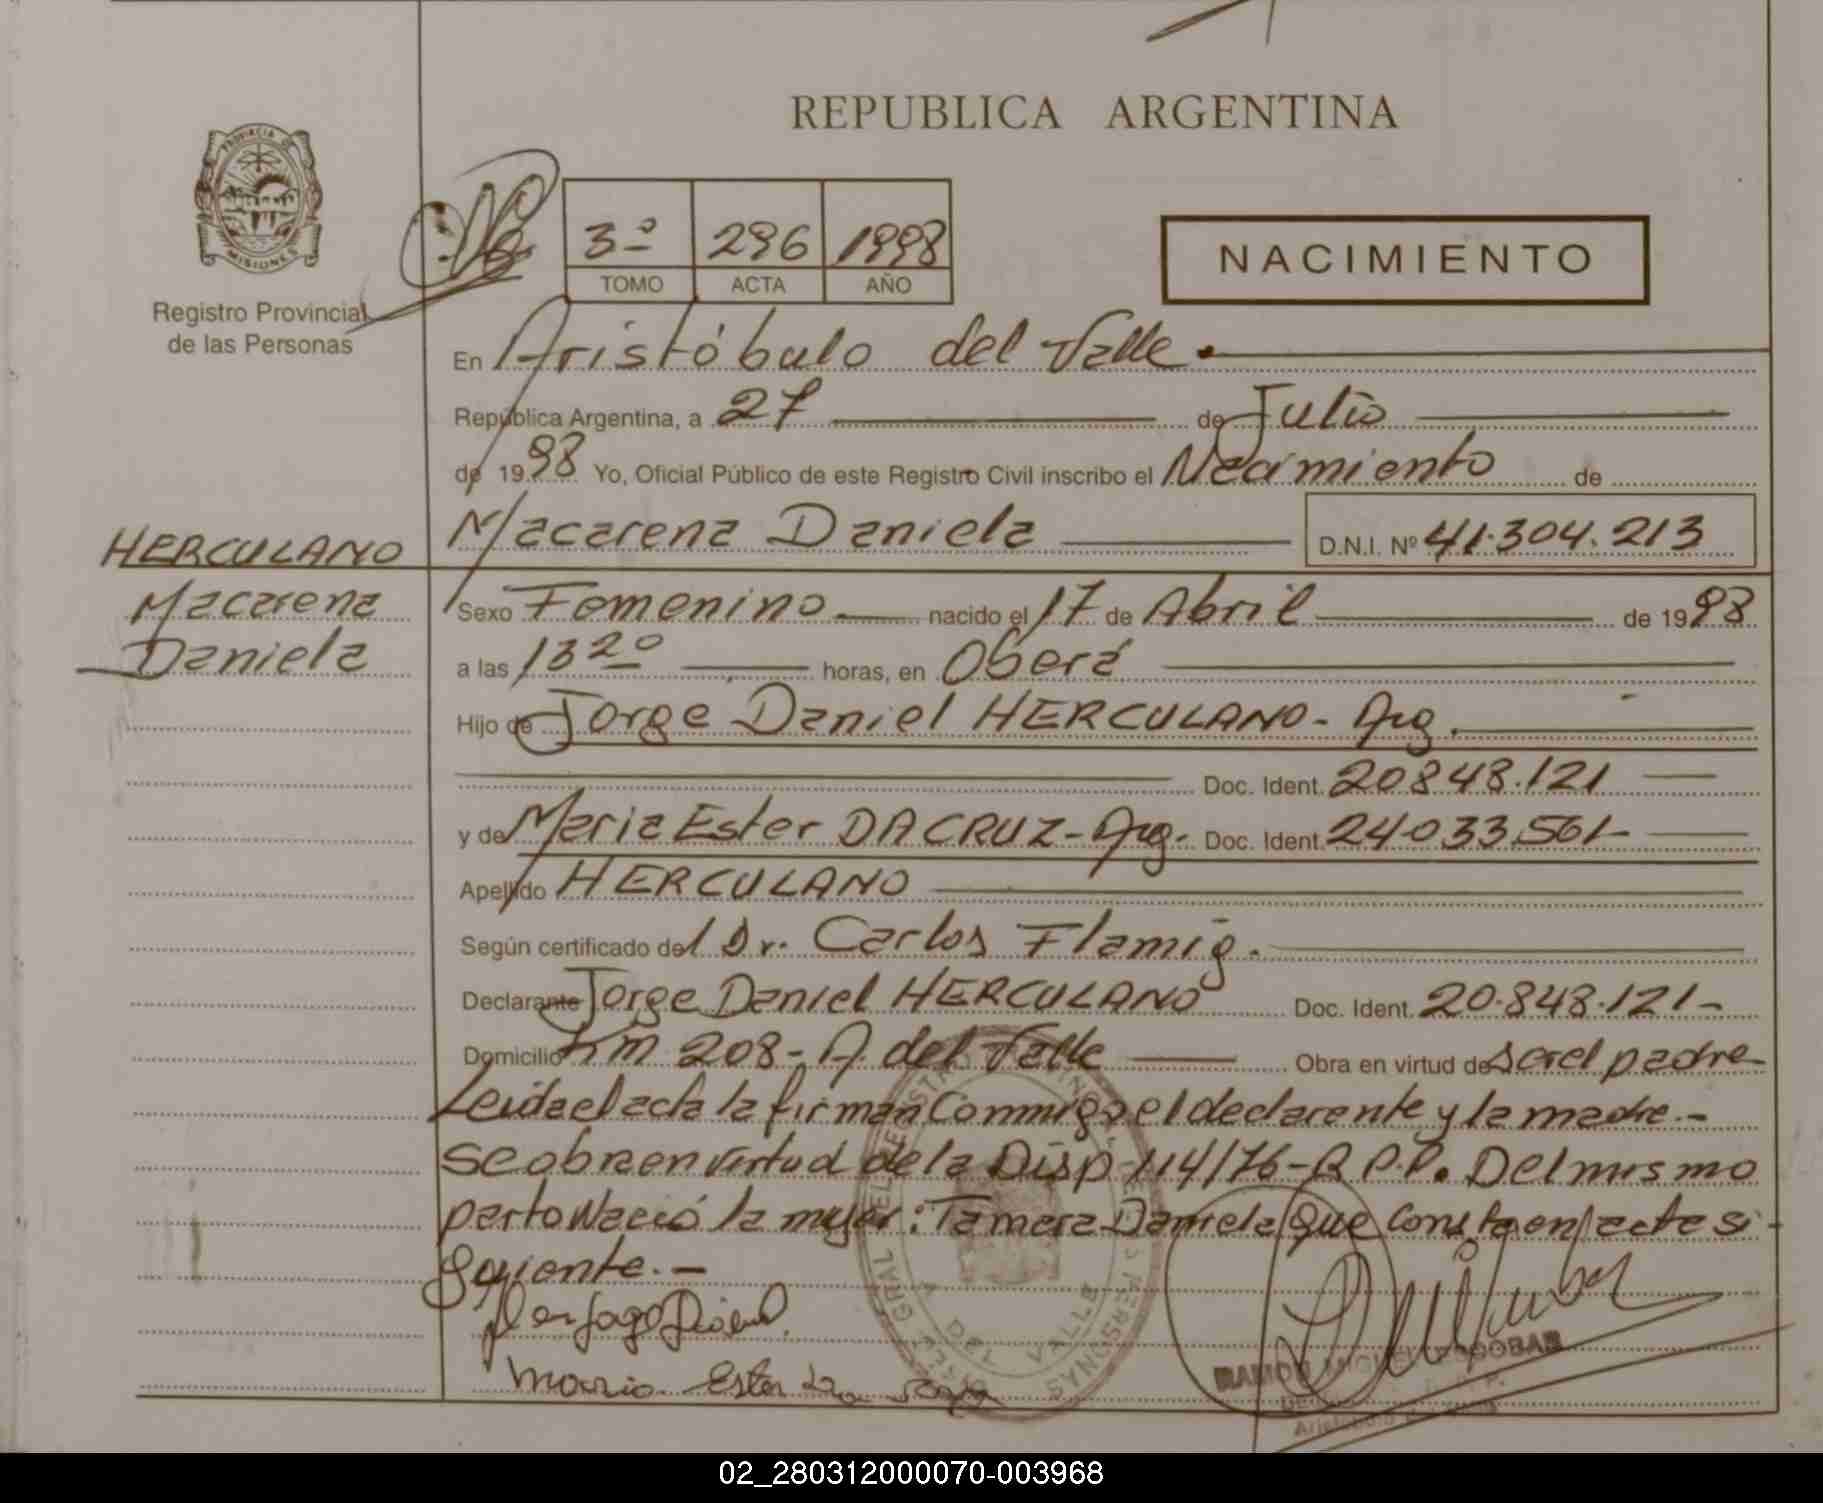 REPUBLICA ARGENTINA
PROVINCIA DE
MISIONES
Registro Provincial
de las Personas
3º 296 1998
TOMO ACTA AÑO
NACIMIENTO
En Aristóbulo del Valle.
República Argentina, a 27 de Julio
de 1998 Yo, Oficial Público de este Registro Civil inscribo el Nacimiento de
HERCULANO
Macarena
Daniela
Macarena Daniela D.N.I. Nº 41.304.213
Sexo Femenino nacido el 17 de Abril de 1998
a las 13 20 horas, en Oberá
Hijo de Jorge Daniel HERCULANO - Arg.
Doc. Ident. 20848.121
y de Maria Ester DA CRUZ - Arg. Doc. Ident. 24.033.561-
Apellido HERCULANO
Según certificado del Dr. Carlos Flamig.
Declarante Jorge Daniel HERCULANO Doc. Ident. 20.848.121-
Domicilio Km 208 - A. del Valle Obra en virtud de ser el padre
Leida el acta la firman Conmigo el declarante y la madre.-
Se obra en virtud de la Disp 114/76 - R.P.P. Del mismo
parto Nació la mujer: Tamara Daniela que consta en acta si-
guiente.-
Maria Ester
RAMON MIGUEL ESCOBAR
DEL VALLE
02_280312000070-003968